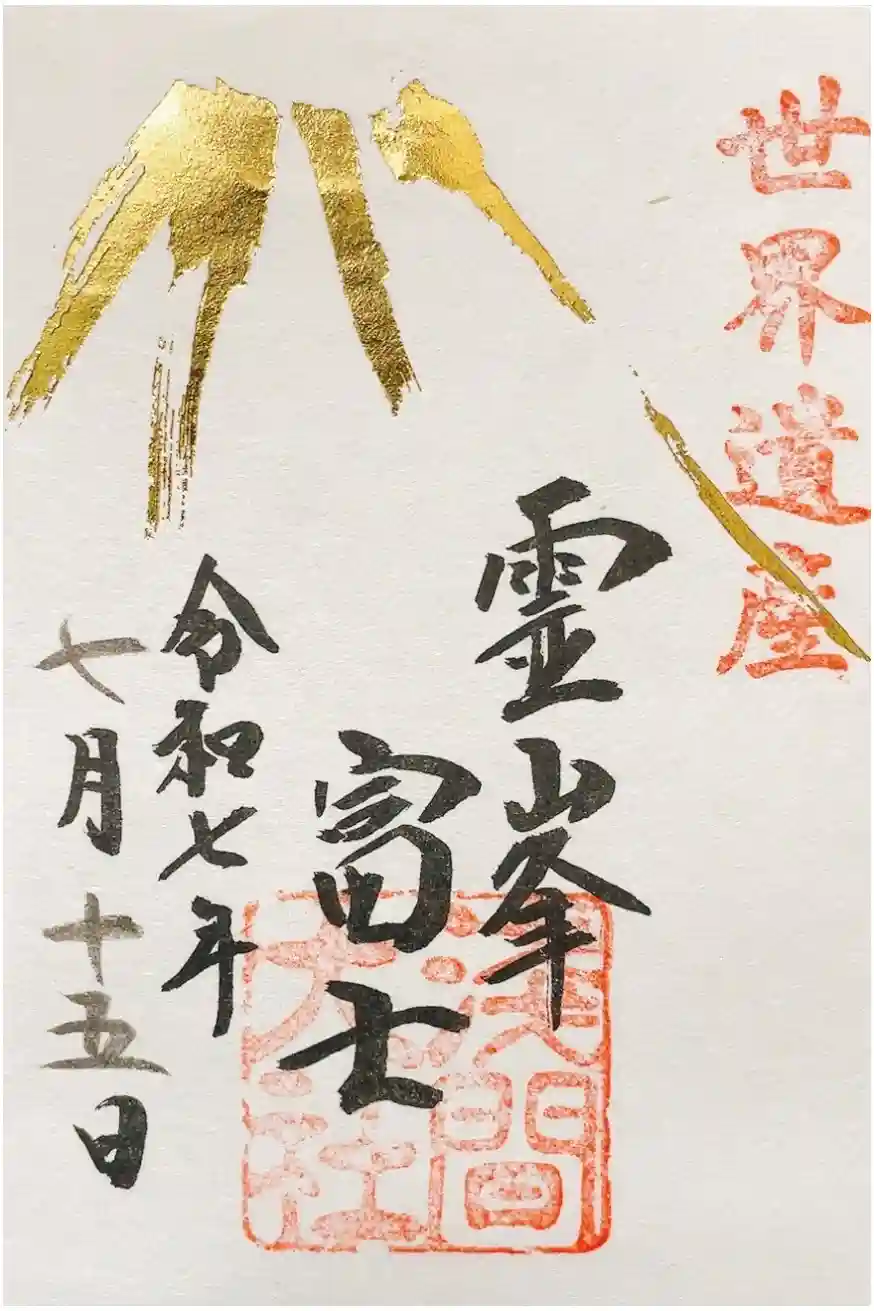 世界遺産
霊峯
富士
浅間
大社
令和七年
七月十五日